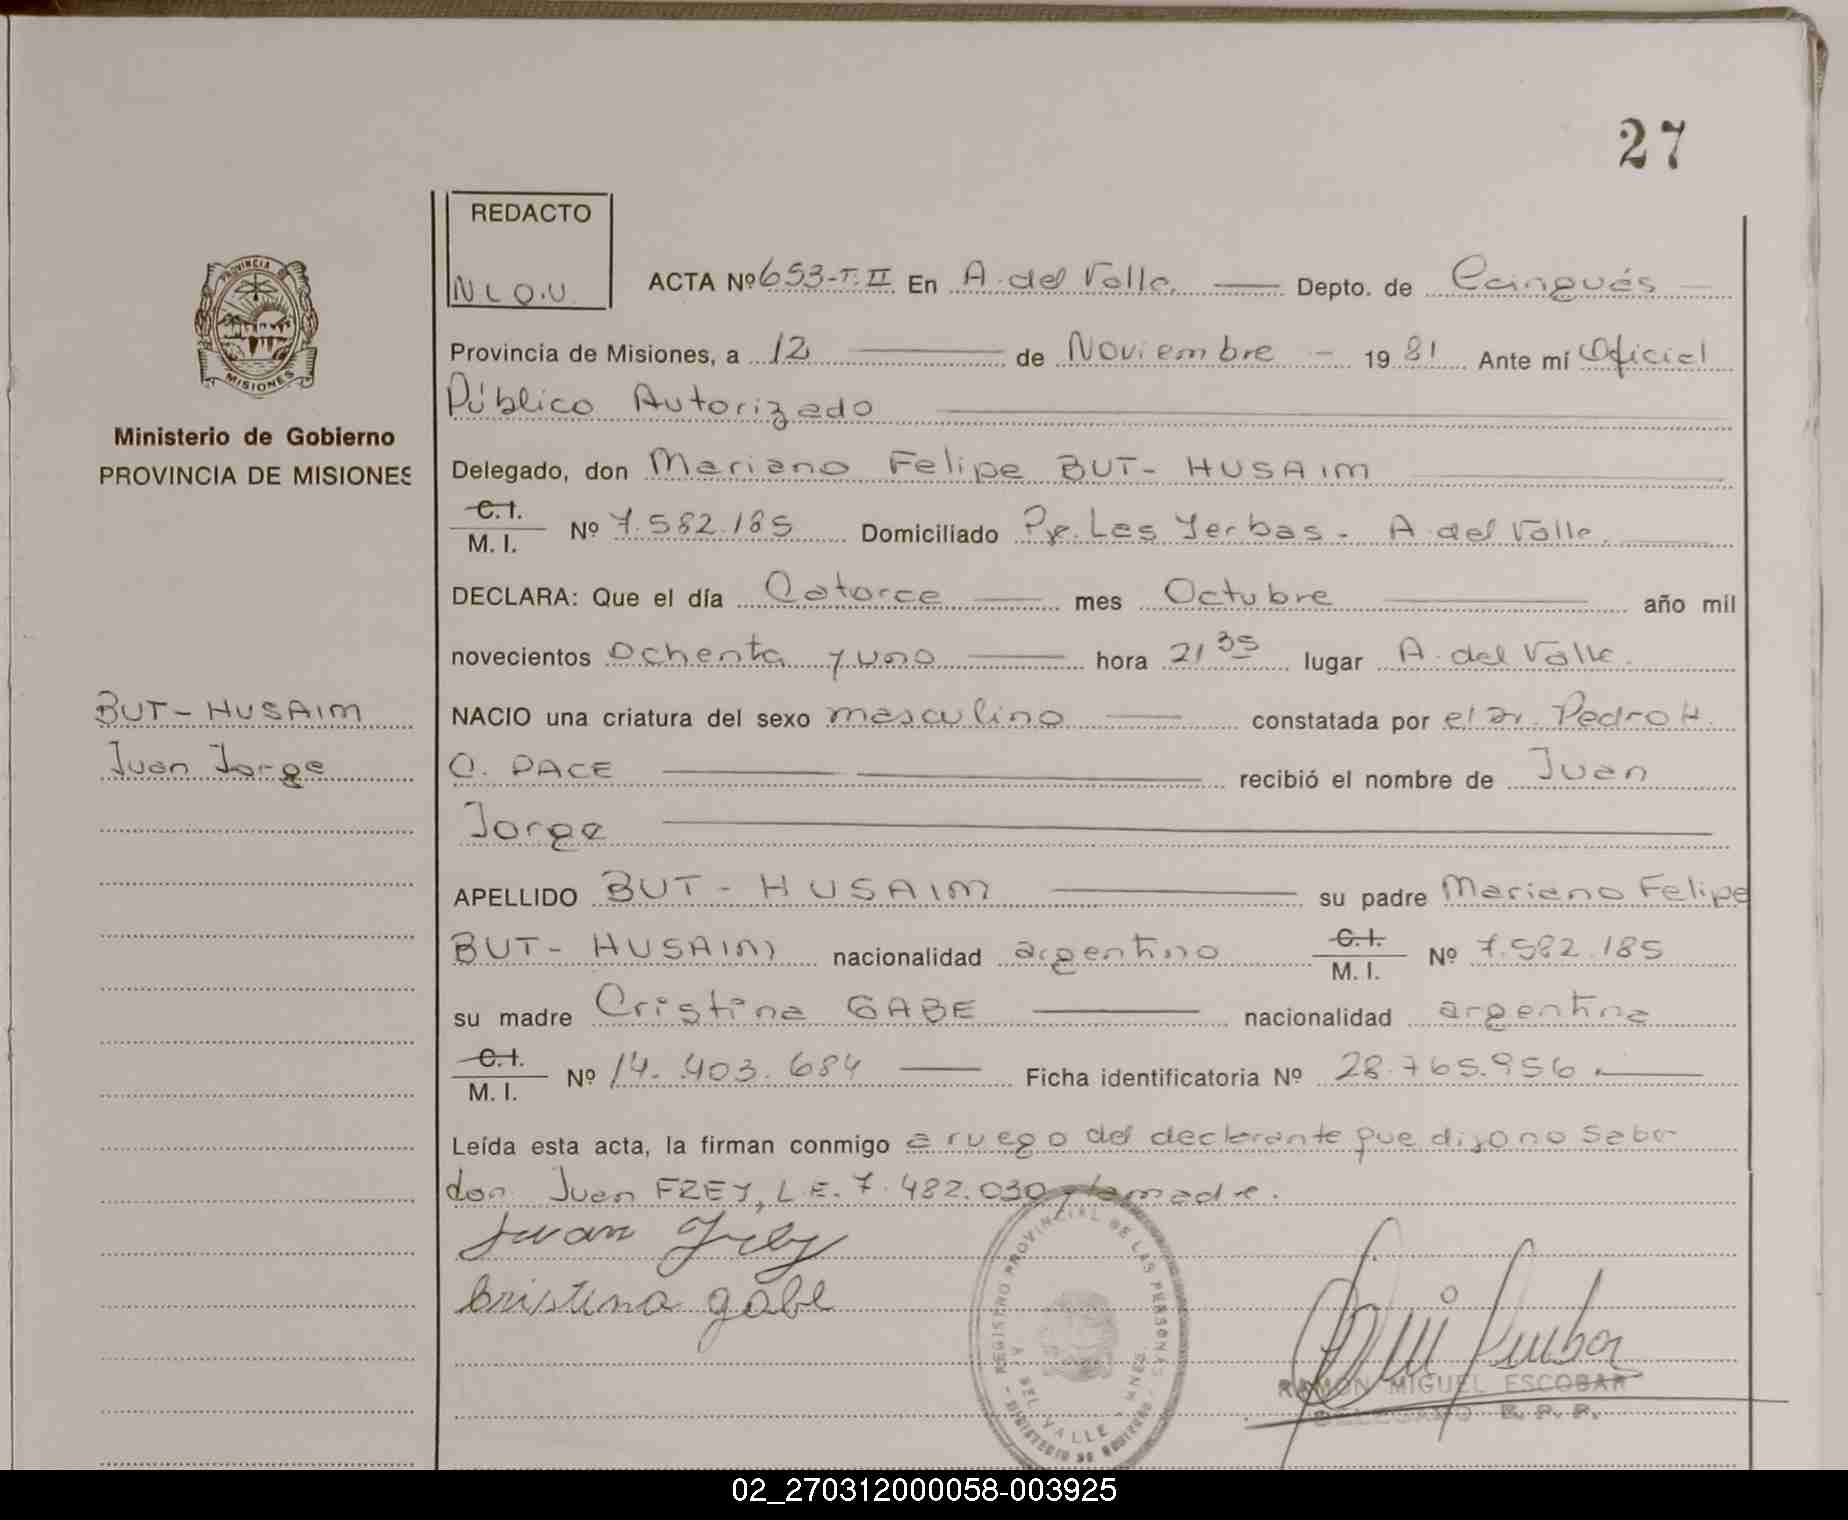 27
REDACTO
N L O.U.
ACTA Nº 653-T.II En A. del Valle Depto. de Cainguás
Provincia de Misiones, a 12 de Noviembre 19 81 Ante mí Oficial
Público Autorizado
Delegado, don Mariano Felipe BUT- HUSAIM
C.I.
M. I. Nº 7.582.185 Domiciliado Pje. Las Yerbas - A. del Valle.
DECLARA: Que el día Catorce mes Octubre año mil
novecientos ochenta y uno hora 21 35 lugar A. del Valle.
NACIO una criatura del sexo masculino constatada por el Dr. Pedro H.
O. PACE recibió el nombre de Juan
Jorge
APELLIDO BUT - HUSAIM su padre Mariano Felipe
BUT- HUSAIM nacionalidad argentino C.I.
M. I. Nº 7.582.185
su madre Cristina GABE nacionalidad argentina
C.I.
M. I. Nº 14.403.684 Ficha identificatoria Nº 28.765.956.
Leída esta acta, la firman conmigo a ruego del declarante que dijo no saber
don Juan FREY, L.E. 7.482.030 y la madre.
Juan Frey
Cristina gabe
REGISTRO PROVINCIAL DE LAS PERSONAS
A. DEL VALLE - MNES.
MINISTERIO DE GOBIERNO
RAMON MIGUEL ESCOBAR
DELEGADO R. P. P.
PROVINCIA DE
MISIONES
Ministerio de Gobierno
PROVINCIA DE MISIONES
BUT-HUSAIM
Juan Jorge
02_270312000058-003925